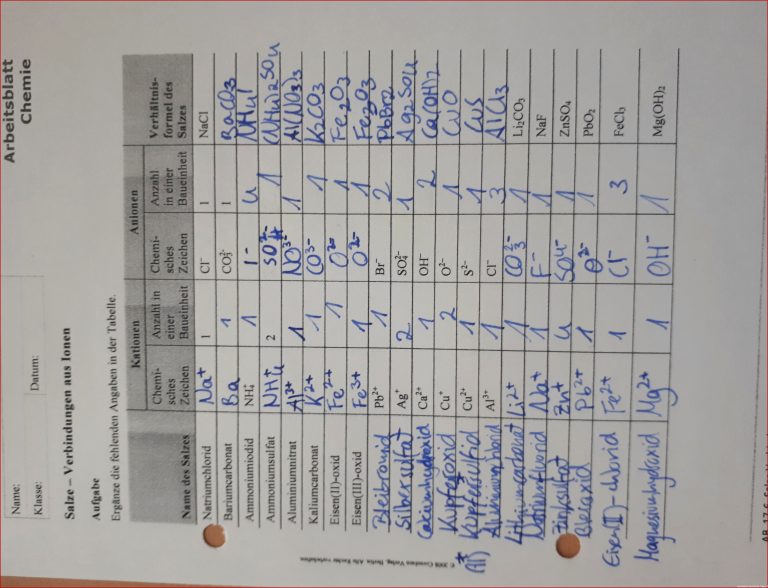 Arbeitsblatt
Chemie
Name:
Klasse:
Datum:
Salze – Verbindungen aus Ionen
Aufgabe
Ergänze die fehlenden Angaben in der Tabelle.
Kationen Anionen
Name des Salzes Chemi-sches Zeichen Anzahl in einer Baueinheit Chemi-sches Zeichen Anzahl in einer Baueinheit Verhältnis-formel des Salzes
Natriumchlorid Na+ 1 Cl⁻ 1 NaCl
Bariumcarbonat Ba 1 CO₃²⁻ 1 BaCO3
Ammoniumiodid NH₄⁺ 1 I⁻ 4
Ammoniumsulfat NH4+ 2 1 (NH4)2SO4
Aluminiumnitrat Al3+ 1 NO3- 1 Al(NO3)3
Kaliumcarbonat K2+ 1 CO3- 1 K2CO3
Eisen(II)-oxid Fe2+ 1 O2- 1 Fe2O3
Eisen(III)-oxid Fe3+ 1 O2- 1 Fe2O3
Pb²⁺ 1 Br⁻ 2 PbBr2
Silbersulfat Ag⁺ 2 SO₄²⁻ 1 Ag2SO4
Calciumhydroxid Ca²⁺ 1 OH⁻ 2 Ca(OH)2
Kupferoxid Cu⁺ 2 O²⁻ 1 CuO
Kupfersulfid Cu²⁺ 1 S²⁻ 1 CuS
Al³⁺ 1 Cl⁻ 3 AlCl3
Lithiumcarbonat Li2+ 1 CO3 2- 1 Li₂CO₃
Natriumfluorid Na+ 1 F- 1 NaF
Zinksulfat Zn+ 4 SO4- 1 ZnSO₄
Bleioxid Pb2+ 1 O2- 1 PbO₂
Eisen(II)-chlorid Fe2+ 1 Cl- 3 FeCl₃
Magnesiumhydroxid Mg2+ 1 OH- 1 Mg(OH)₂